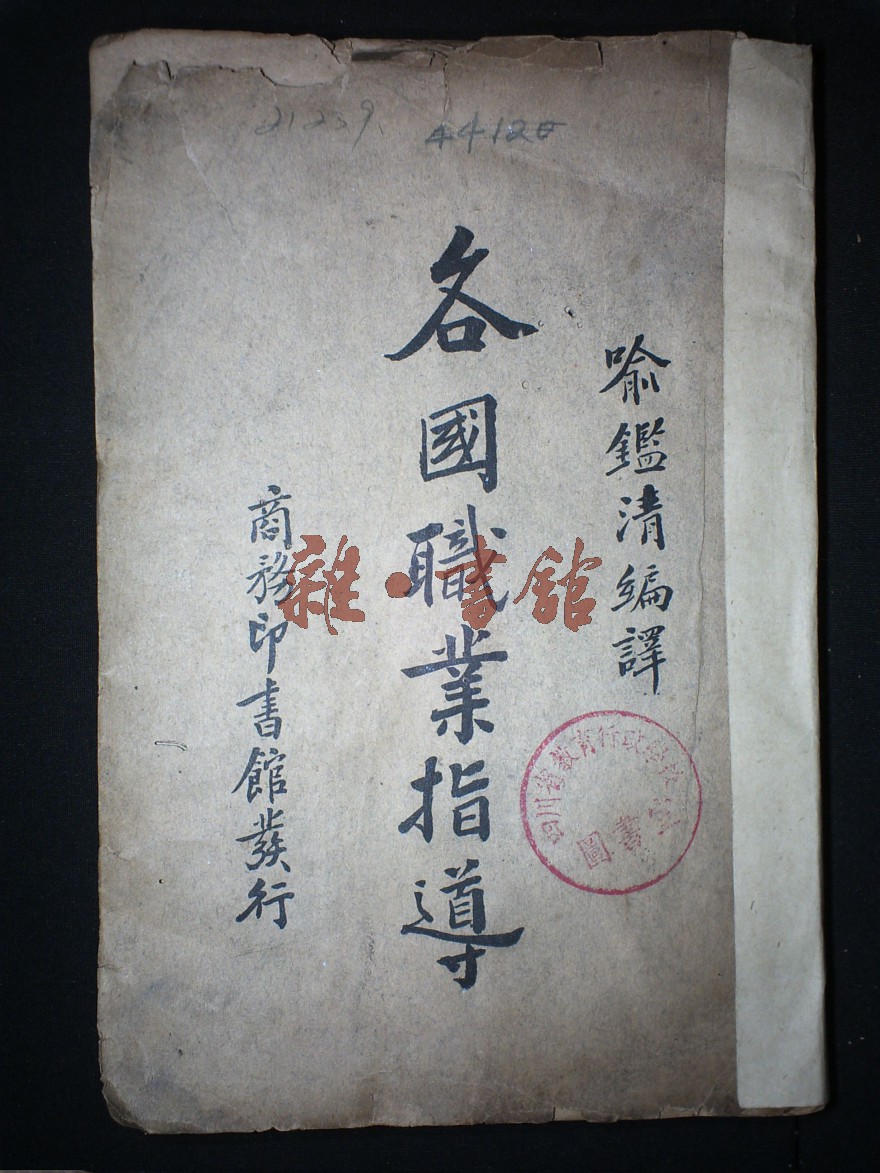 21239
喻鑑清編譯
各國職業指導
商務印書館發行
四川省教育行政
圖書
雜·書舘